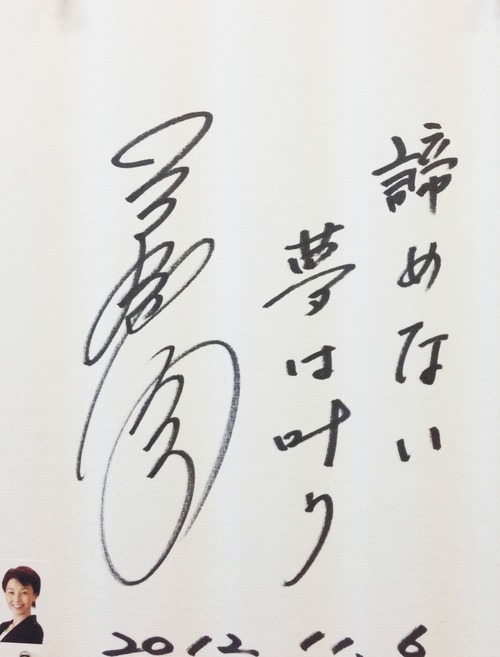 諦めない
夢は叶り
2012.11.6